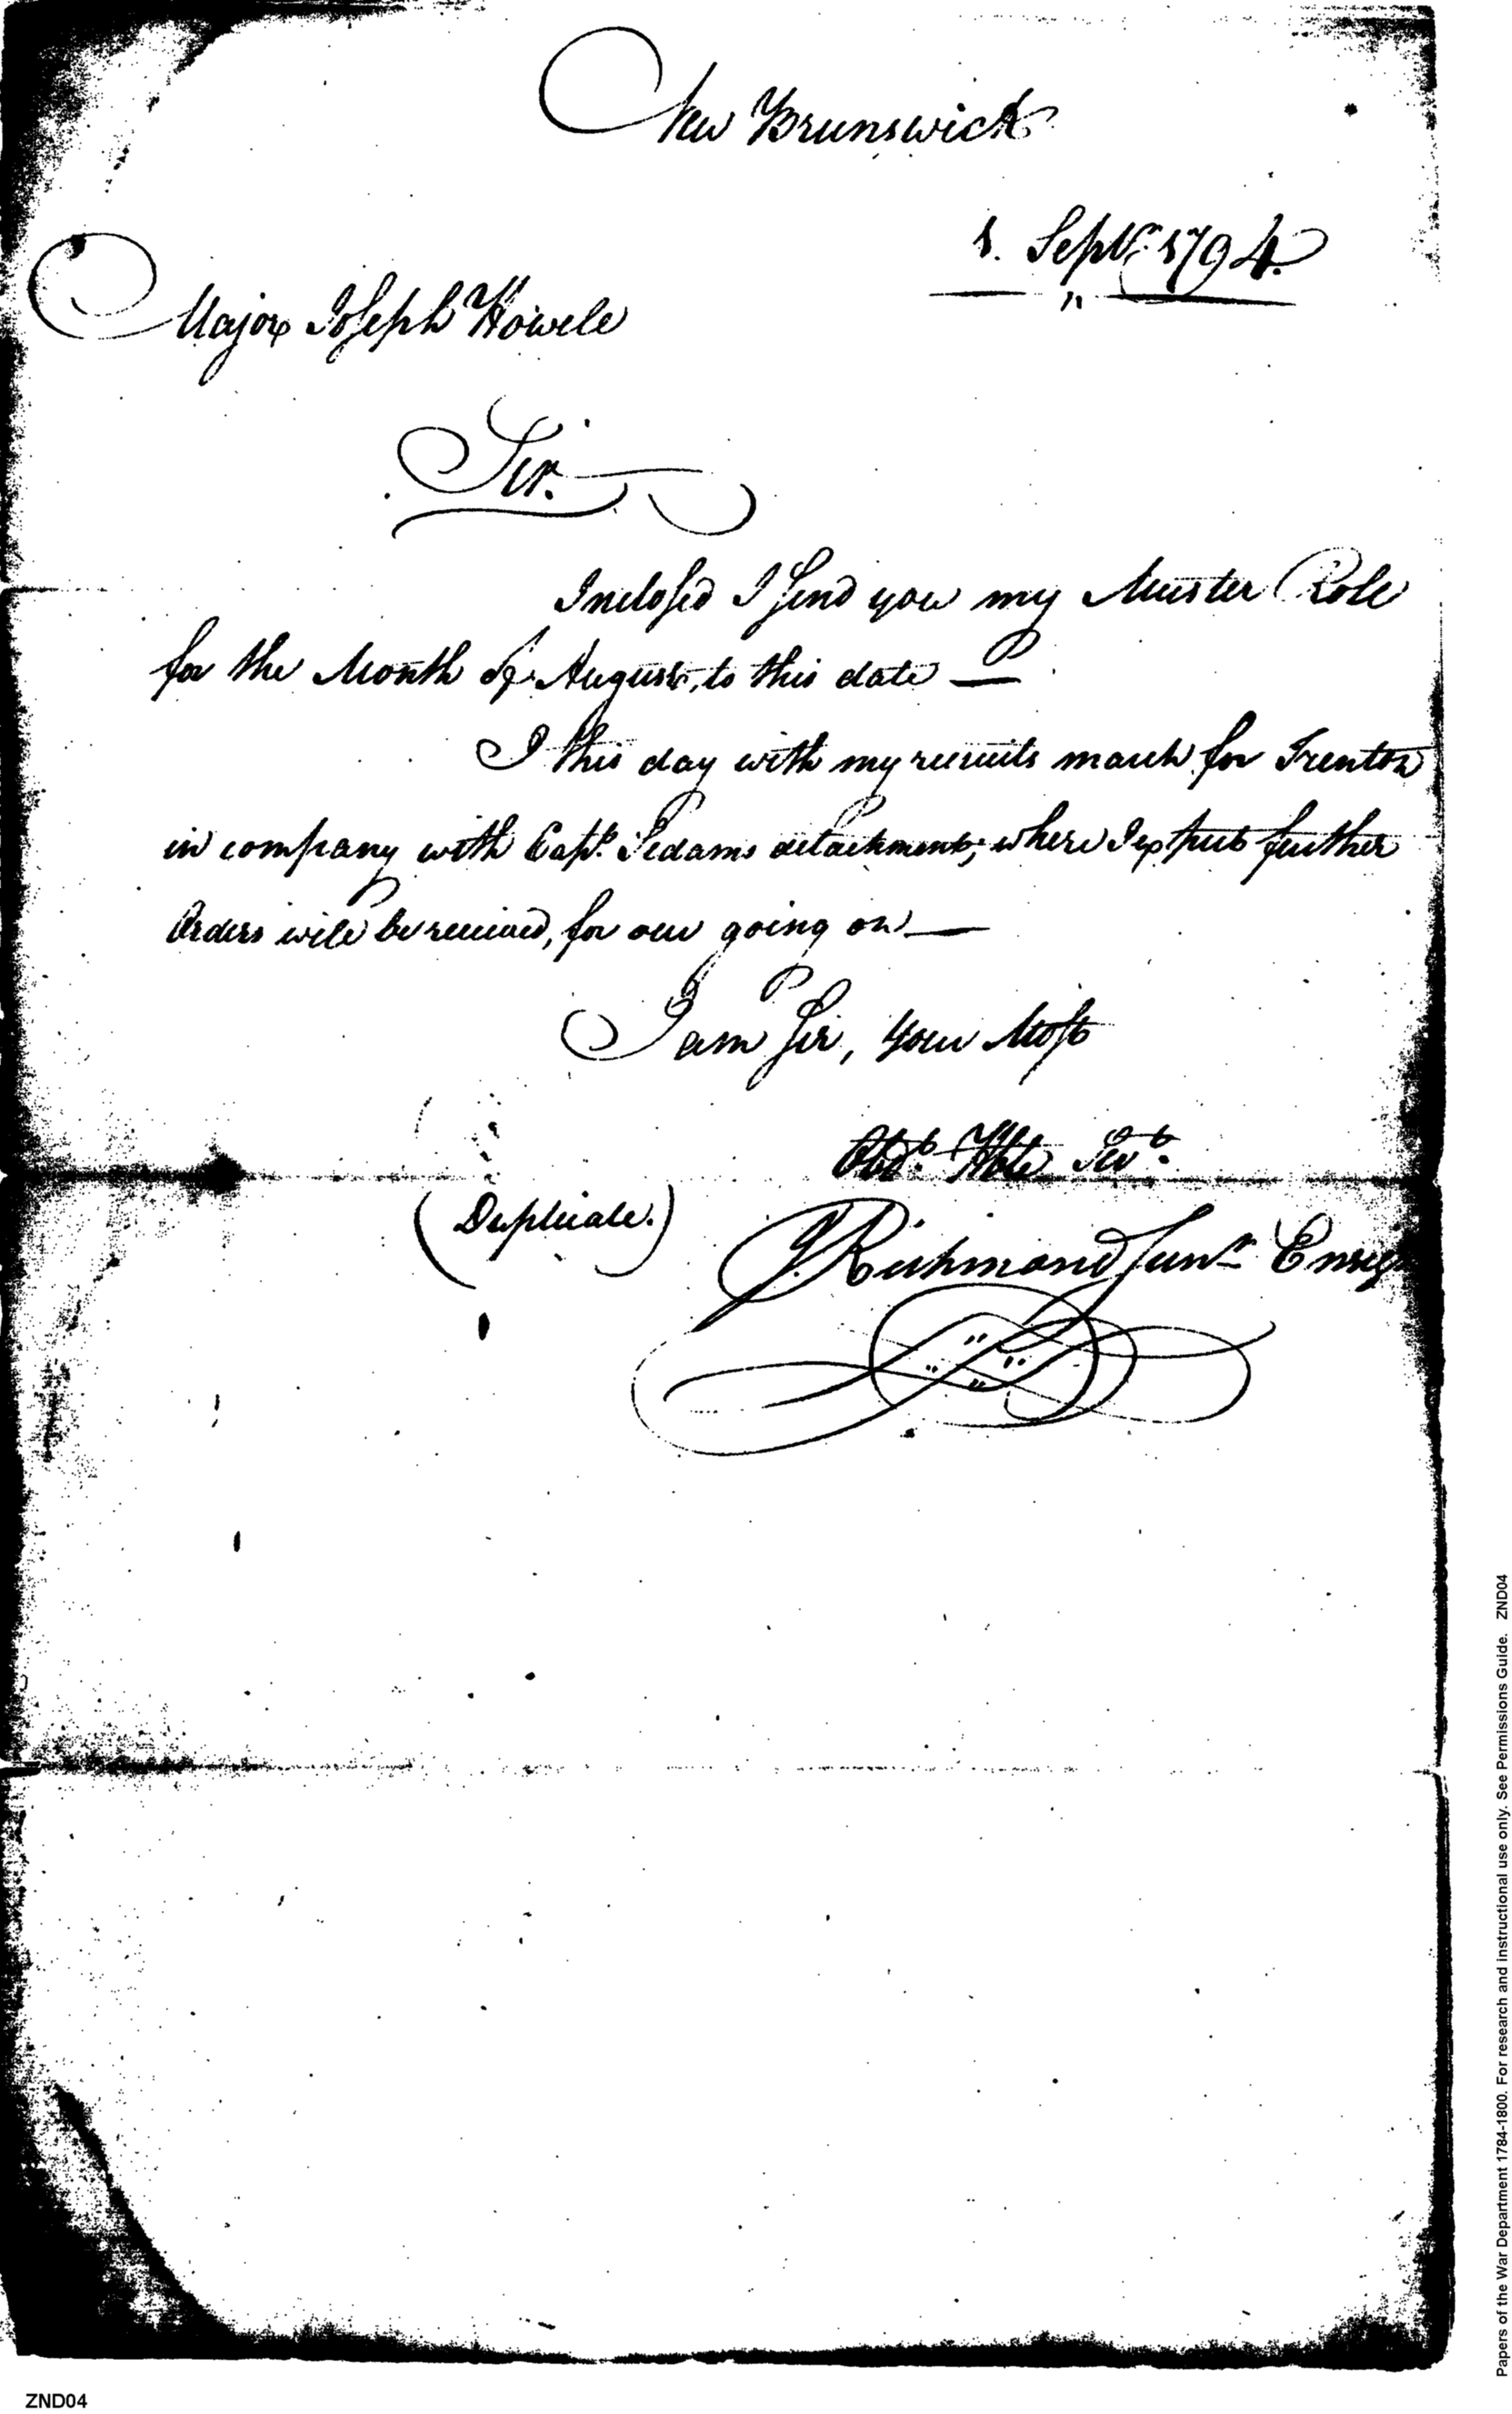 New Brunswick
1. Septr. 1794.
Major Joseph Howell
Sir.
Inclosed I send you my Muster Role
for the Month of August, to this date —
I this day with my recruits march for Trenton
in company with Capt. Pedams detachment; where I expect further
Orders will be received, for our going on —
I am Sir, Your Most
Obdt. Hble Servt.
(Duplicate.)
J. Richmond Junr. Ensign
Papers of the War Department 1784-1800. For research and instructional use only. See Permissions Guide. ZND04
ZND04